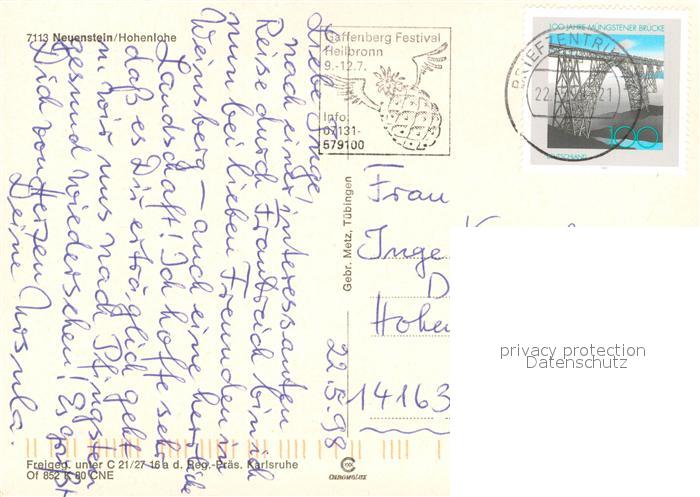 7113 Neuenstein/Hohenlohe
Gaffenberg Festival
Heilbronn
9.-12.7.
Info:
07131-
579100
BRIEFZENTRUM
22
21
100 JAHRE MÜNGSTENER BRÜCKE
100
DEUTSCHLAND
Liebe Inge!
nach einer interessanten
Reise durch Frankreich bin ich
nun bei lieben Freunden in
Weinsberg – auch eine herrliche
Landschaft! Ich hoffe sehr,
daß es Dir erträglich geht
u. wir uns nach Pfingsten
gesund wiedersehen! Es grüßt
Dich von Herzen
Deine
22.5.98
Gebr. Metz, Tübingen
Frau
Inge K
D
Hohen
14163
privacy protection
Datenschutz
Freigeg. unter C 21/27 16 a d. Reg.-Präs. Karlsruhe
Of 852 K 80 CNE